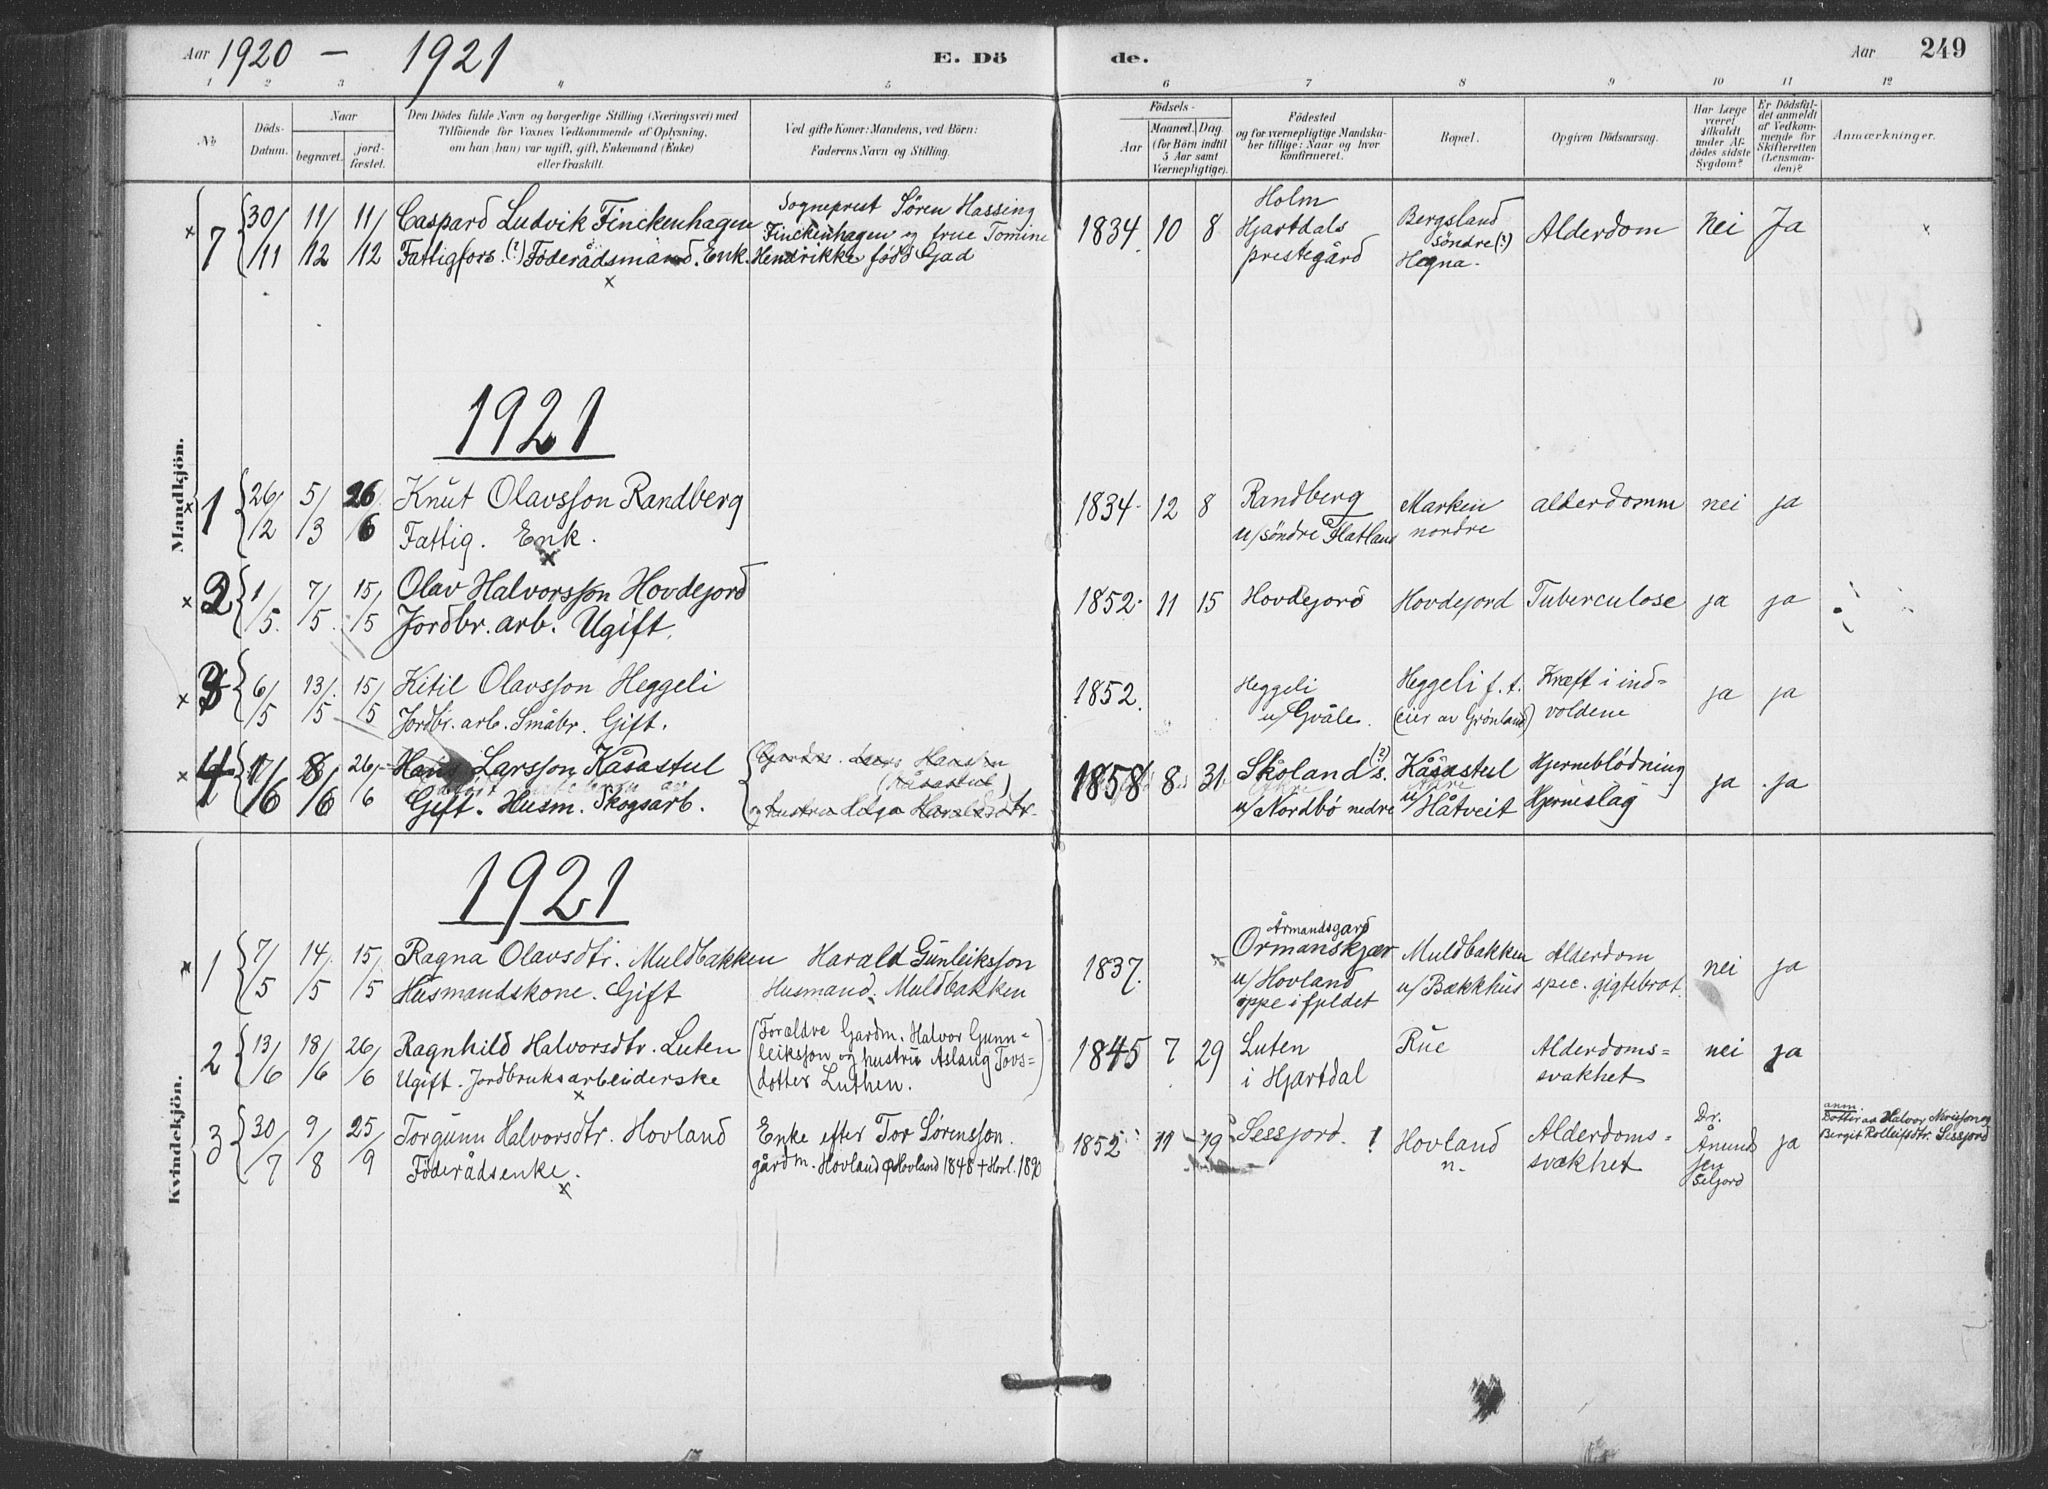 Aar 1920 — 1921 E. Dö de. Aar 249
1 2 3 4 5 6 7 8 9 10 11 12
No
Döds-Datum.
Naar
begravet.
jord-fæstet.
Den Dödes fulde Navn og borgerlige Stilling (Næringsvei) med
Tilföiende for Voxnes Vedkommende af Oplysning,
om han (hun) var ugift, gift, Enkemand (Enke)
eller fraskilt.
Ved gifte Koner: Mandens, ved Börn:
Faderens Navn og Stilling.
Födsels-
Aar
Maaned. Dag
(for Börn indtil
5 Aar samt
Værnepligtige).
Födested
og for værnepligtige Mandska-
ber tillige: Naar og hvor
konfirmeret.
Bopæl.
Opgiven Dödsaarsag.
Har Læge
været
tilkaldt
under Af-
dödes sidste
Sygdom?
Er Dödsfal-
det anmeldt
af Vedkom-
mende for
Skifteretten
(Lensman-
den)?
Anmærkninger.
Mandkjön.
x 7 30/11 11/12 11/12
Caspard Ludvik Finckenhagen
Fattigfors. (?) Föderådsmand. Enk.
x
Sogneprest Sören Hassing
Finckenhagen og frue Tomine
Hendrikke född Gad
1834 10 8
Holm
Hjartdals
prestegård
Bergsland
söndre (?)
Hegna.
Alderdom Nei Ja
1921
x 1 26/2 5/3 26/6
Knut Olavsson Randberg
Fattig. Enk.
x
1834 12 8
Randberg
u/söndre Flatland
Marken
nordre
alderdomm nei ja
x 2 1/5 7/5 15/5
Olav Halvorsson Hovdejord
Jordbr. arb. Ugift.
1852 11 15 Hovdejord Hovdejord Tuberculose ja ja
x 3 6/5 13/5 15/5
Kitil Olavsson Heggeli
Jordbr. arb. Småbr. Gift.
1852.
Heggeli
u/Gvåle.
Heggeli f. t.
(eier av Grönland)
Kræft i ind=
voldene
ja ja
x 4 8/6 26/6
Hans Larsson Kåsastul
Gift. Husm. Skogsarb.
Hansen
(Kåsastul)
og hustru Helga Haraldsdtr.
1858 8 31
Skoland (?)
u/Nordbö nedre
Kåsastul
u/Håtveit
Hjerneblödning
Hjerneslag
ja ja
1921
Kvindekjön.
x 1 7/5 14/5 15/5
Ragna Olavsdtr. Muldbakken
Husmandskone. Gift
Harald Gunleiksson
Husmand. Muldbakken
1837.
Årmandsgard
Ormanskjær
u/Hovland
oppe i fjeldet
Muldbakken
u/Bækkhus
Alderdom
spec. gigtebrot.
nei ja
2 13/6 18/6 26/6
Ragnhild Halvorsdtr. Luten
Ugift. Jordbruksarbeiderske
x
(Forældre Gardm. Halvor Gunn=
leiksson og hustru Aslaug Tovs=
dotter Luthen.)
1845 7 29
Luten
i Hjartdal
Rue
Alderdoms=
svakhet
nei ja
3 30/7 9/8 25/9
Torgunn Halvorsdtr. Hovland
Föderådsenke.
x
Enke efter Tor Sörensson.
gårdm. Hovland φHovland 1848 + Hovl. 1890
1852 11 19
Sessjord. !
Hovland
n.
Alderdoms=
svækhet
Dr.
Ånund
sen
Seljord
ja
anm.
Dotter av Halvor Nirisson og
Birgit Rolleifsdtr. Sessjord